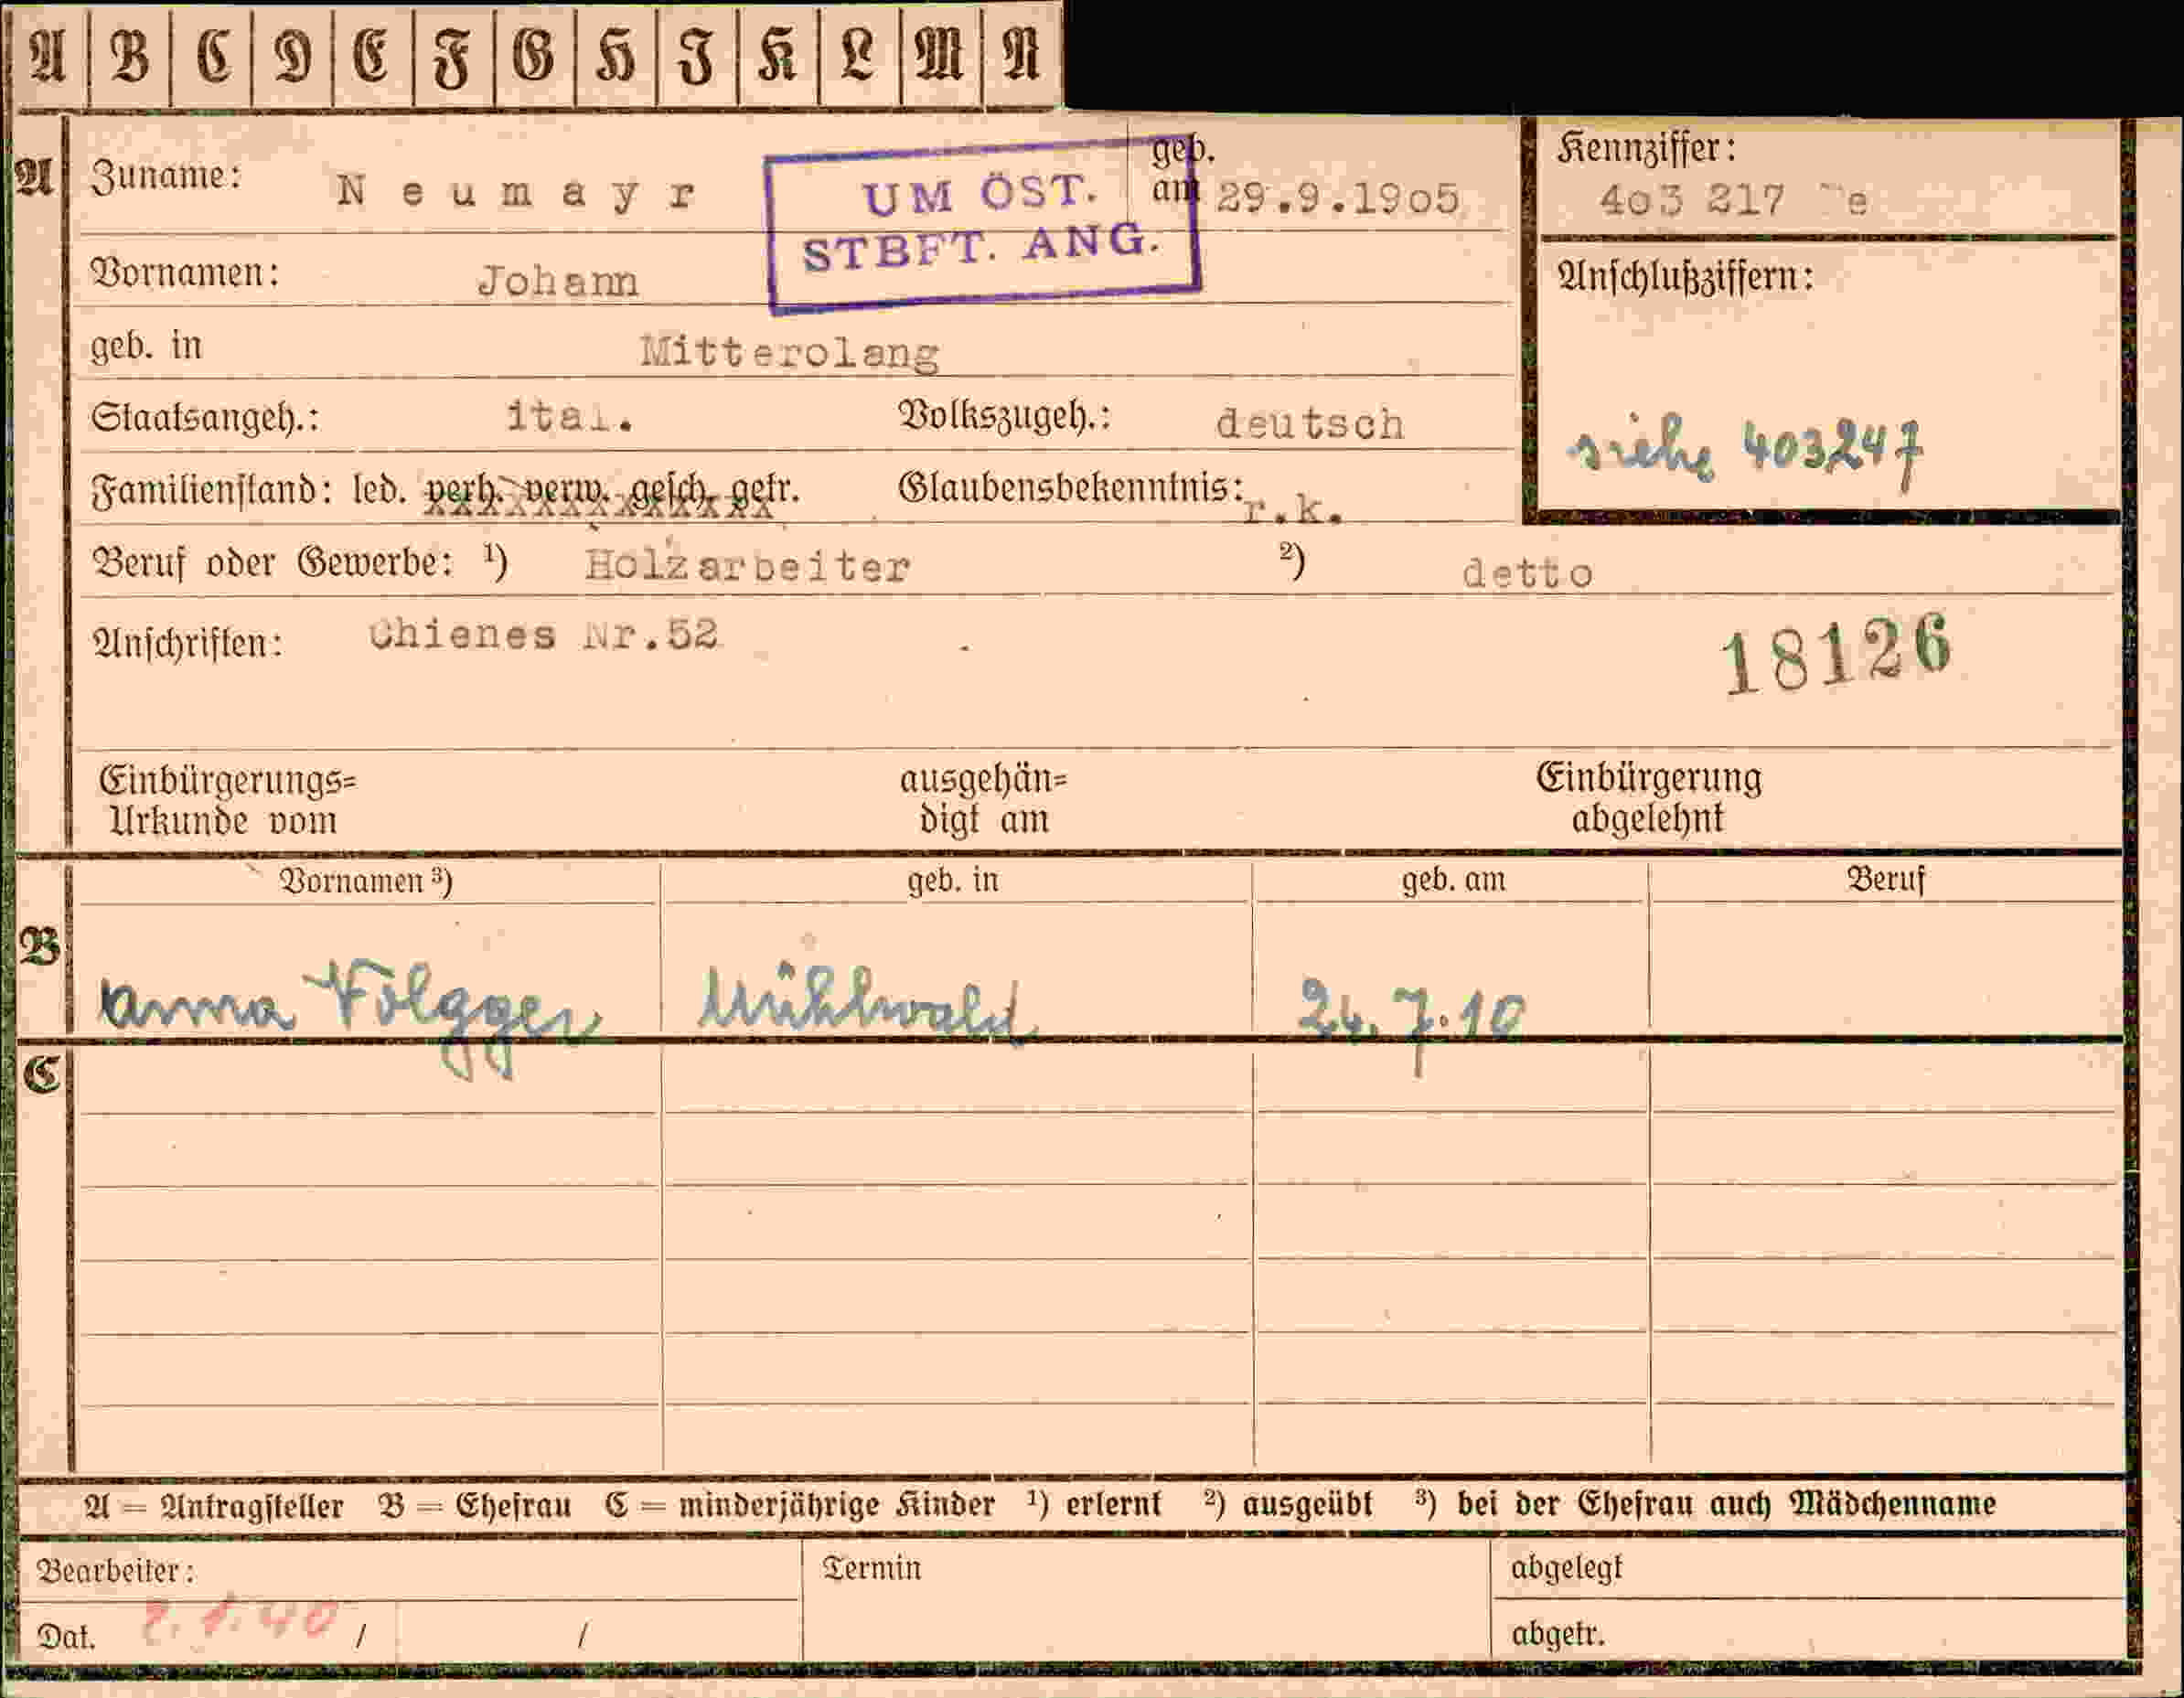 A B C D E F G H I K L M N
A Zuname: Neumayr geb. am 29.9.1905 Kennziffer:
403 217 e
UM ÖST.
STBFT. ANG.
Vornamen: Johann Anschlußziffern:
geb. in Mitterolang
Staatsangeh.: ital. Volkszugeh.: deutsch siehe 403247
Familienstand: led. verh. verw. gesch. getr. Glaubensbekenntnis: r.k.
Beruf oder Gewerbe: ¹) Holzarbeiter ²) detto
Anschriften: Chienes Nr.52 18126
Einbürgerungs= ausgehän= Einbürgerung
Urkunde vom digt am abgelehnt
Vornamen ³) geb. in geb. am Beruf
B Anna Volgger Mühlwald 24.7.10
C
A = Antragsteller B = Ehefrau C = minderjährige Kinder ¹) erlernt ²) ausgeübt ³) bei der Ehefrau auch Mädchenname
Bearbeiter: Termin abgelegt
Dat. 2.1.40 / / abgetr.